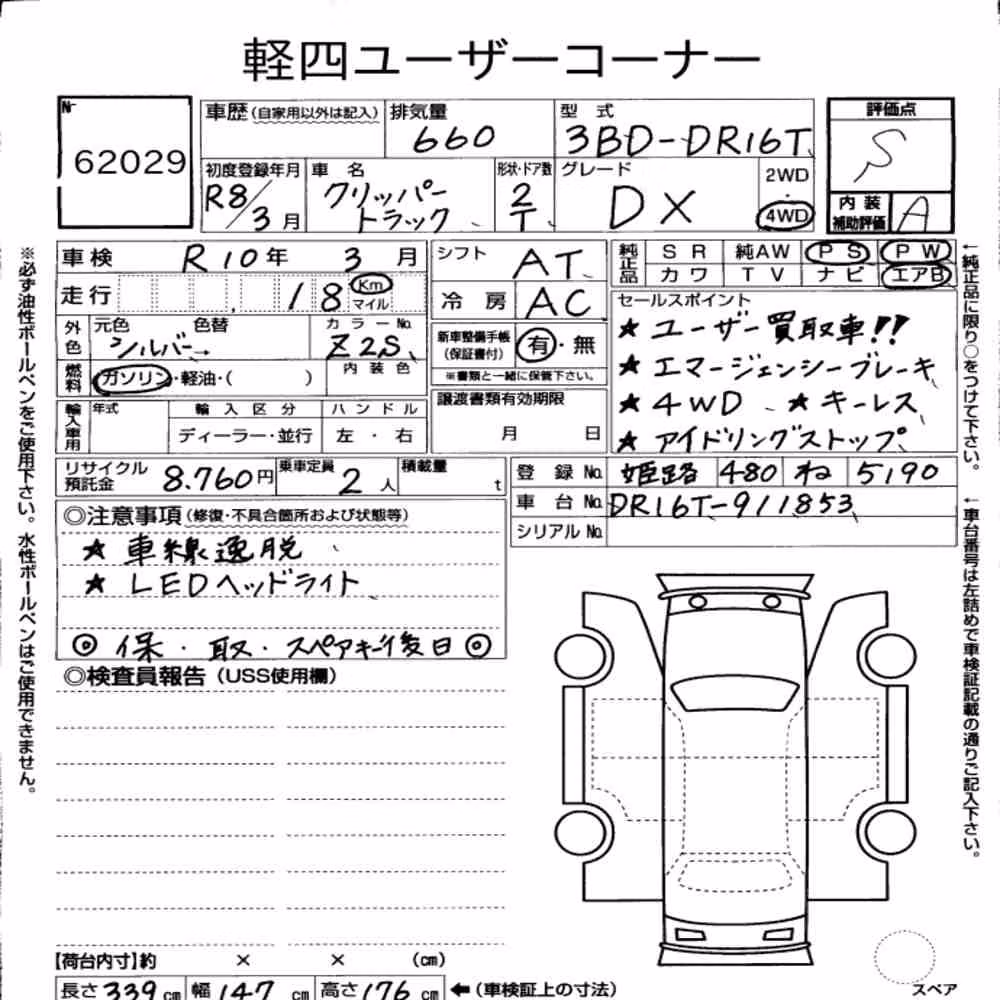 軽四ユーザーコーナー
No
62029
車歴(自家用以外は記入)
排気量
660
型 式
3BD-DR16T
評価点
S
初度登録年月
R8/3月
車 名
クリッパー
トラック
形状・ドア数
2
T
グレード
DX
2WD
・
4WD
内装
補助評価
A
車検 R10年 3月
走行 18 Km
マイル
シフト AT
冷房 AC
純正品
SR 純AW PS PW
カワ TV ナビ エアB
外色
元色 色替
シルバー
カラーNo.
Z2S
内装色
燃料
ガソリン・軽油・( )
新車整備手帳
(保証書付)
有・無
※書類と一緒に保管下さい。
セールスポイント
★ ユーザー買取車!!
★ エマージェンシーブレーキ
★ 4WD ★ キーレス
★ アイドリングストップ
輸入車用
年式
輸入区分
ハンドル
ディーラー・並行
左・右
譲渡書類有効期限
月 日
リサイクル
預託金
8.760円
乗車定員
2人
積載量
t
登録No. 姫路 480 ね 5190
車台No. DR16T-911853
シリアルNo.
◎注意事項(修復・不具合箇所および状態等)
★ 車線逸脱
★ LEDヘッドライト
◎ 保・取・スペアキー後日 ◎
◎検査員報告(USS使用欄)
【荷台内寸】約 × × (cm)
長さ339cm 幅147cm 高さ176cm ←(車検証上の寸法)
スペア
※必ず油性ボールペンをご使用下さい。水性ボールペンはご使用できません。
←純正品に限り○をつけて下さい。
←車台番号は左詰めで車検証記載の通りご記入下さい。